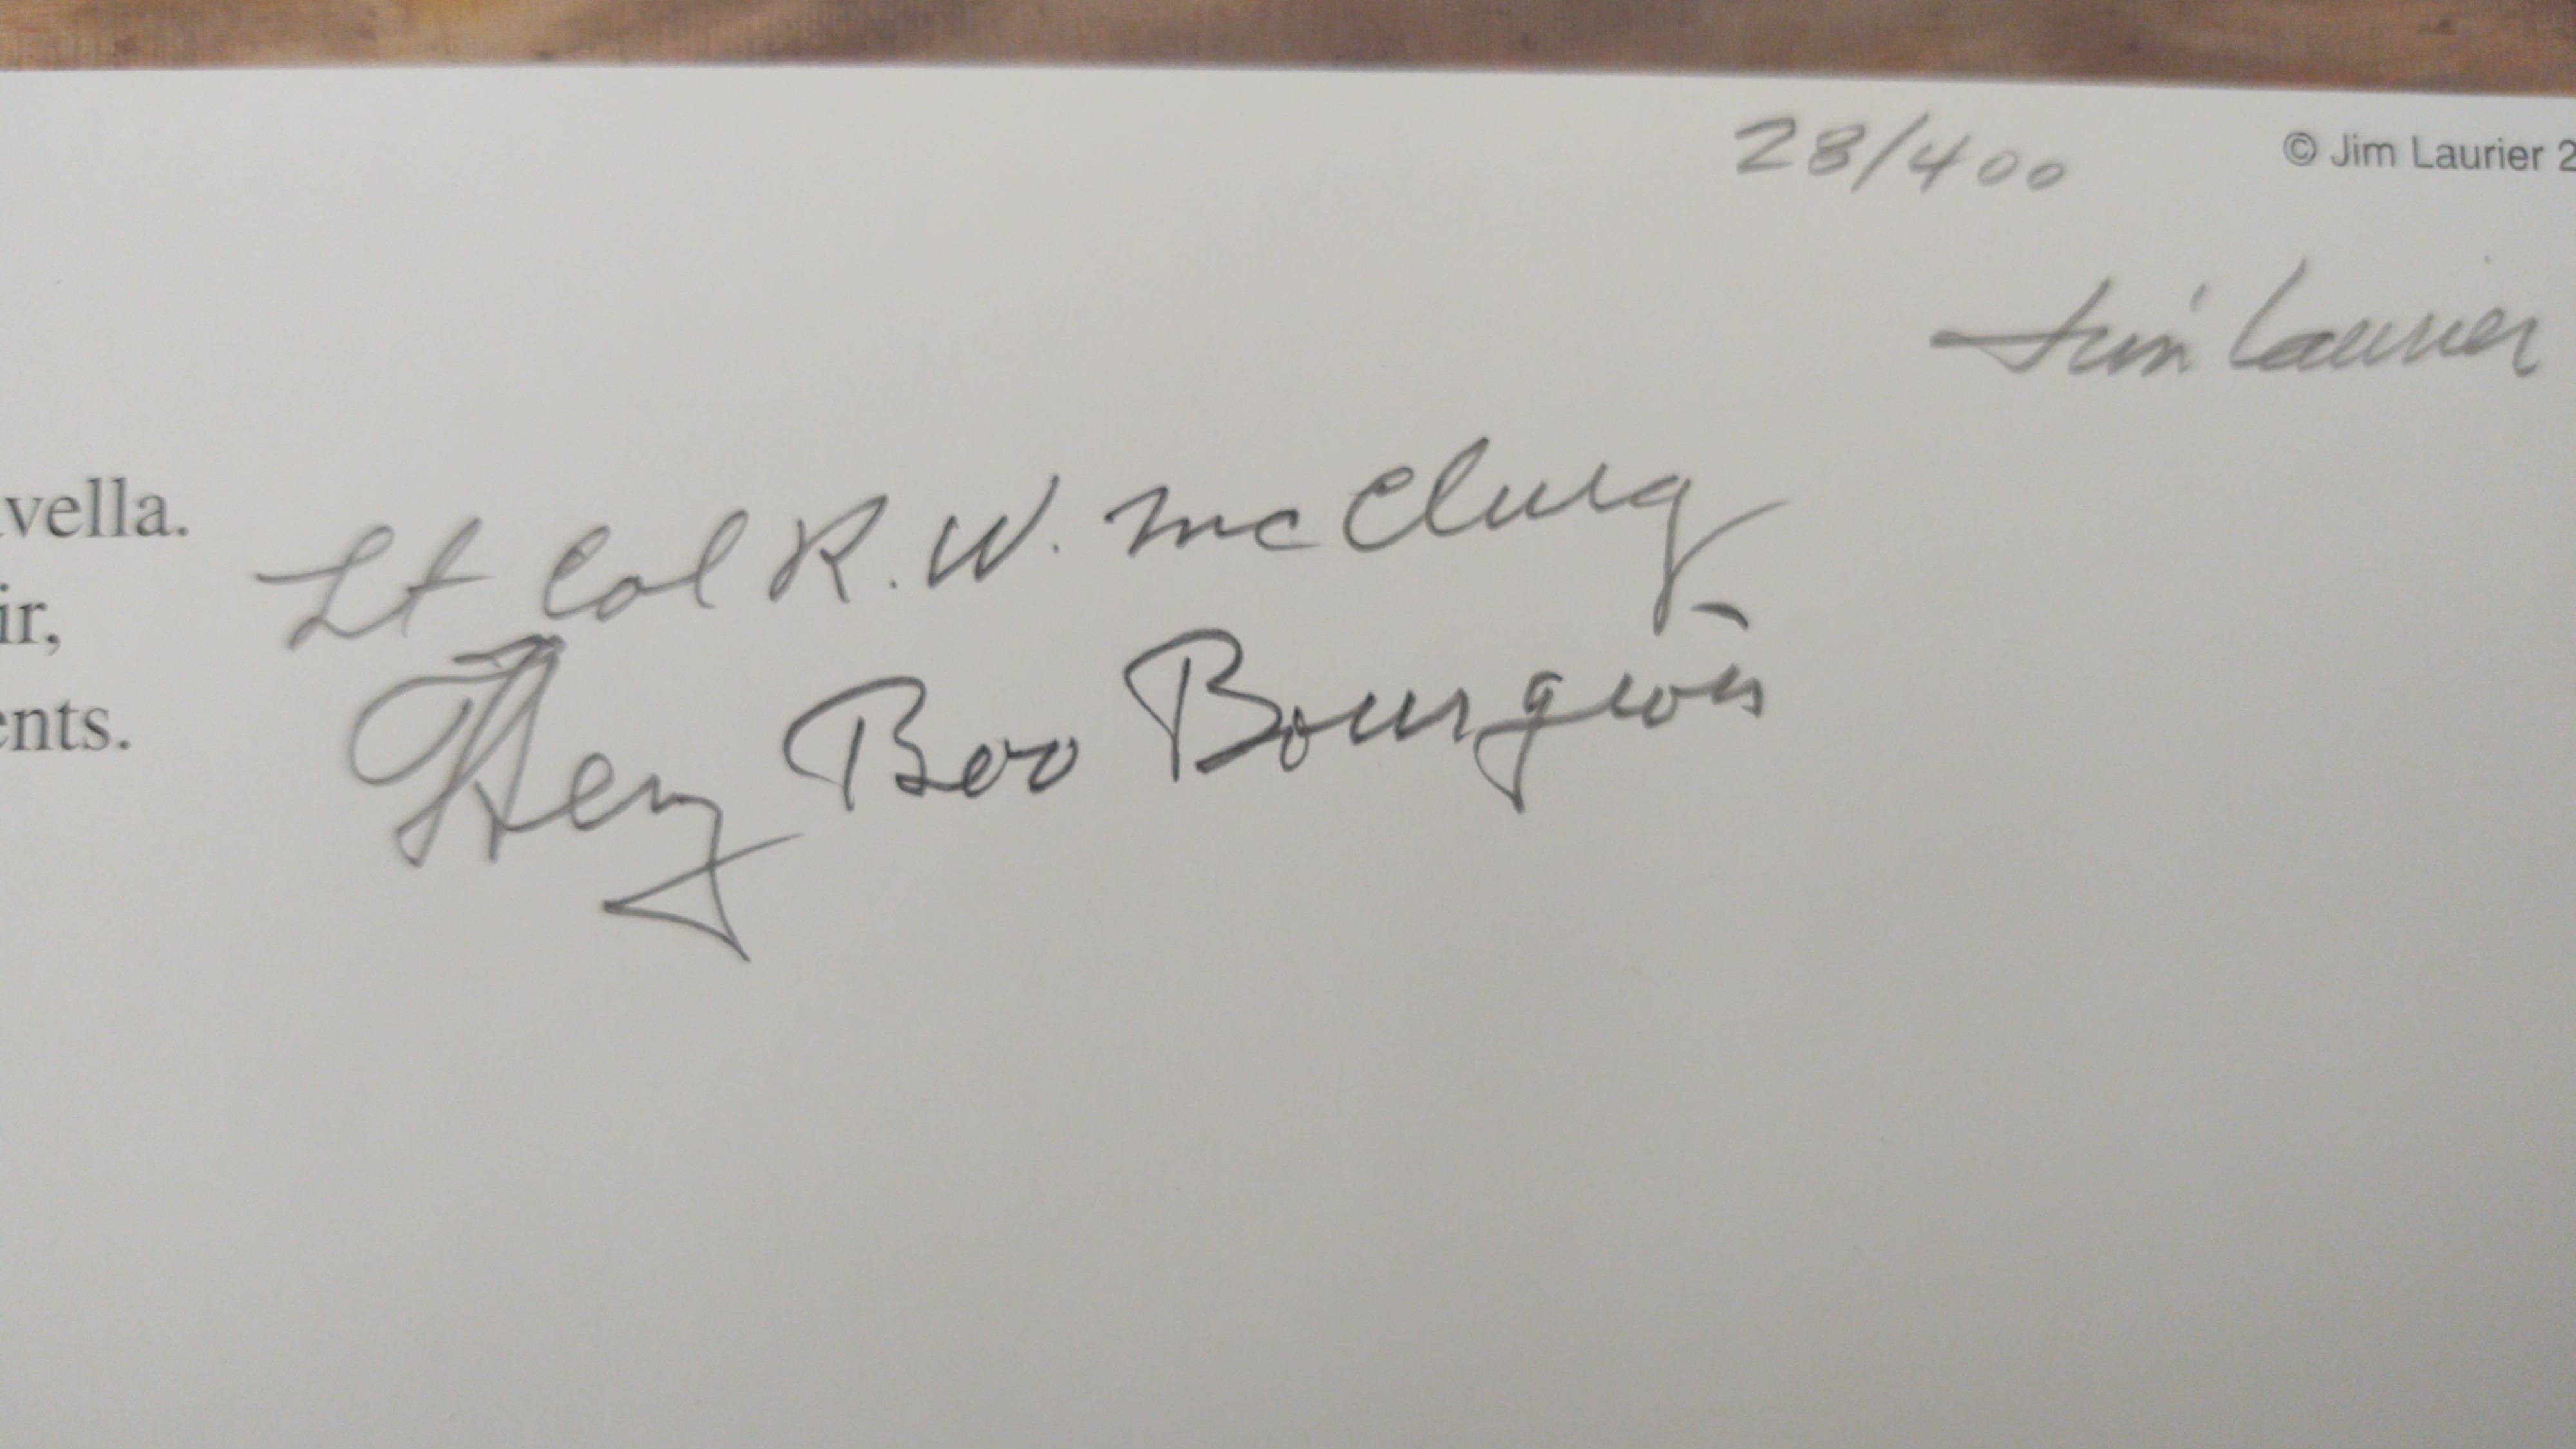 28/400 © Jim Laurier 2
Jim Laurier
vella.
Lt Col R. W. McClurg
ir,
Henry Boo Bourgeois
ents.